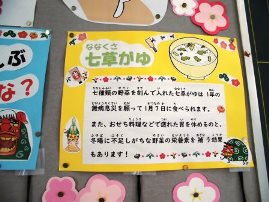 んぶ
な?
ななくさ
七草がゆ
七種類の野草を刻んで入れた七草がゆは1年の
無病息災を願って1月7日に食べられます。
また、おせち料理などで疲れた胃を休めるのと、
冬場に不足しがちな野菜の栄養素を補う効果
もあります!